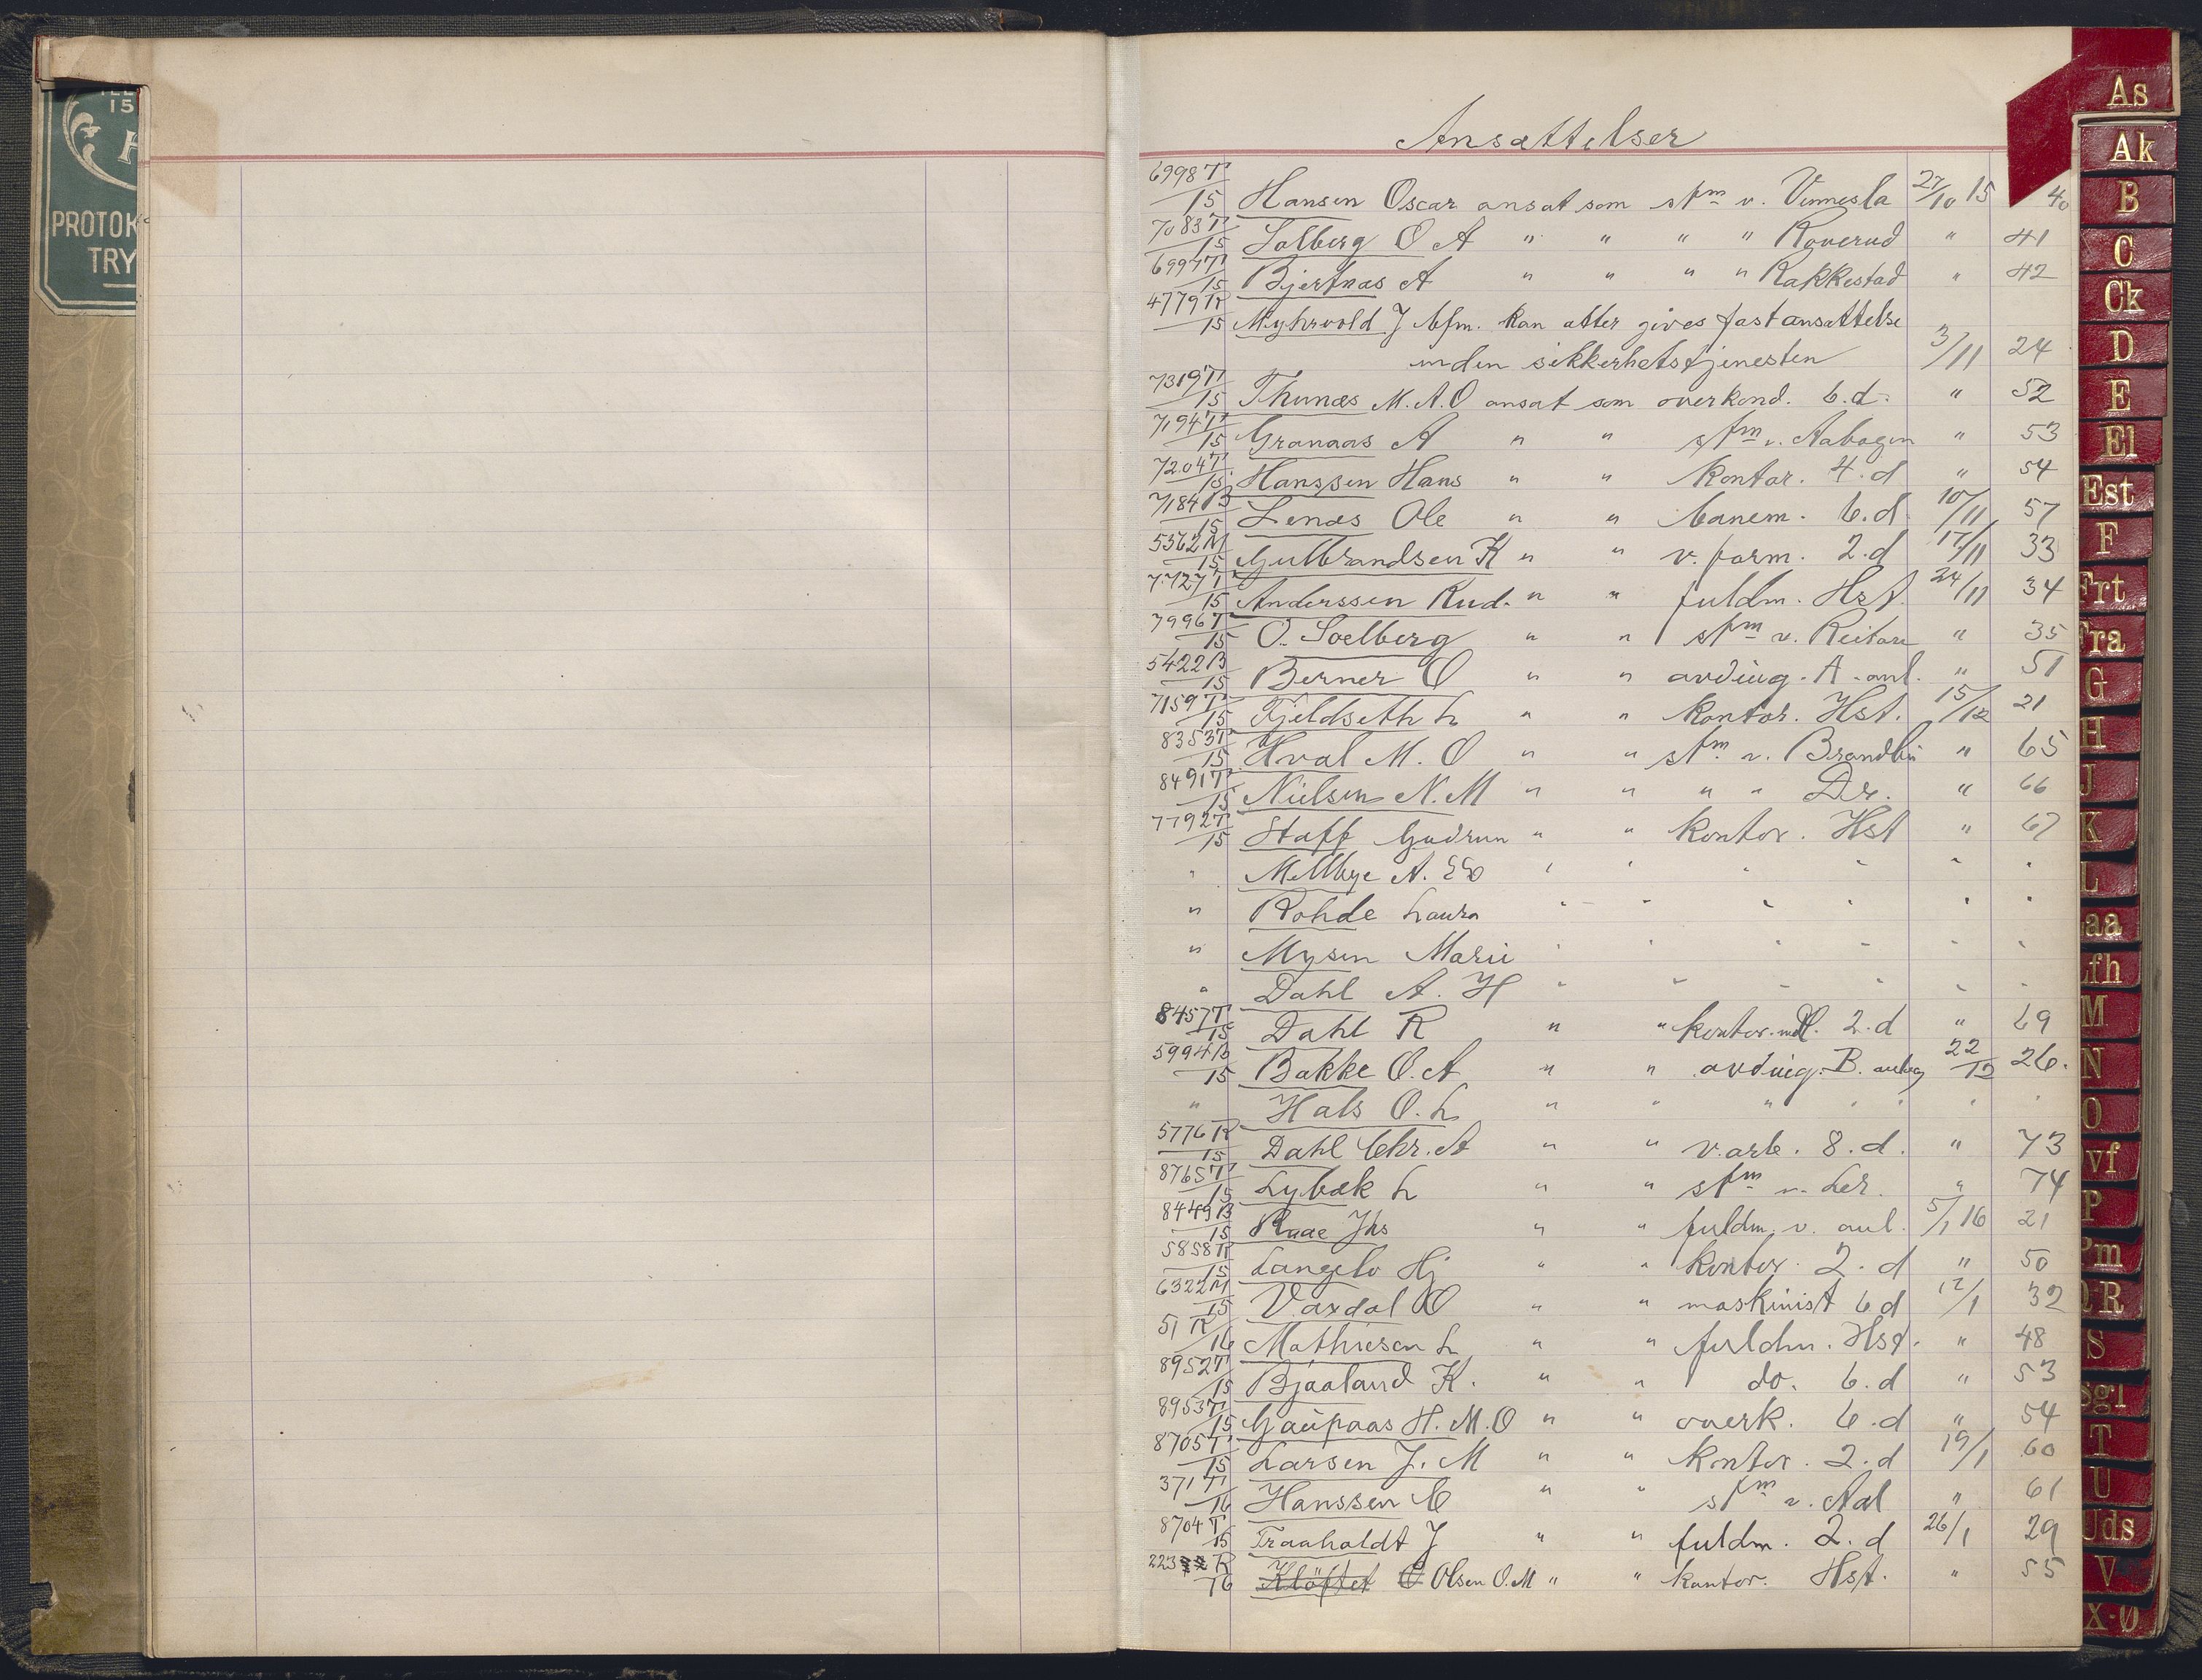 15
PROTOK
TRY
Ansættelser
6998 T/15 Hansen Oscar ansat som stm v. Vennesla 27/10 15 40
7083 T/15 Solberg O A " " " " Roverud " 41
6997 T/15 Bjertnæs A " " " " Rakkestad " 42
4779 R/15 Myhrvold J bfm. kan atter gives fast ansættelse
inden sikkerhetstjenesten 3/11 24
7319 T/15 Thunæs M.A.O ansat som overkond. 6.d. " 52
7194 T/15 Granaas A " " stm v. Aabogen " 53
7204 T/15 Hanssen Hans " " kontor. 4.d " 54
7184 B/15 Lenæs Ole " " banem. 6.d. 10/11 57
5362 M/15 Gulbrandsen K " " v. form. 2.d 17/11 33
7727 T/15 Anderssen Rud. " " fuldm. Hst. 24/11 34
7996 T/15 O. Soelberg " " stm v. Reitan " 35
5422 B/15 Berner O " " avding. A. anl. " 51
7159 T/15 Fjeldseth L " " kontor. Hst. 15/12 21
8353 T/15 Hval M. O " " stm v. Brandbu " 65
8491 T/15 Nielsen N. M " " " " Dr. " 66
7792 T/15 Staff Gudrun " " kontor. Hst " 67
" Mellbye A. " " " " " "
" Rohde Laura " " " " " "
" Mysen Marie " " " " " "
" Dahl A. H " " " " " "
8457 T/15 Dahl R " " kontor. 2.d " 69
5994 B/15 Bakke O. A " " avding. B. anlæg 22/12 26.
" Hals O. L " " " " " " "
5776 R/15 Dahl Chr. A " " v. arb. 8.d. " 73
8765 T/15 Lybæk L " " stm v. Ler. " 74
8449 B/15 Raae Jhs " " fuldm. v. anl. 5/1 16 21
5858 R/15 Langelo Hj " " kontor. 2.d " 50
6322 M/15 Vardal O " " maskinist 6.d 12/1 32
51 R/16 Mathiesen L " " fuldm. Hst. " 48
8952 T/15 Bjaaland K. " " do. 6.d " 53
8953 T/15 Gaupaas H. M. O " " overk. 6.d " 54
8705 T/15 Larsen J. M " " kontor. 2.d 19/1 60
371 T/16 Hanssen C " " stm v. Aal " 61
8704 T/15 Traaholdt J " " fuldm. 2.d 26/1 29
223 R/16 Kløftet O Olsen O.M " " kontor. Hst. " 55
As
Ak
B
C
Ck
D
E
El
Est
F
Frt
Fra
G
H
J
K
L
Laa
Lfh
M
N
O
Ovf
P
Pm
QR
S
Sgl
T
U
Uds
V
X-Ø